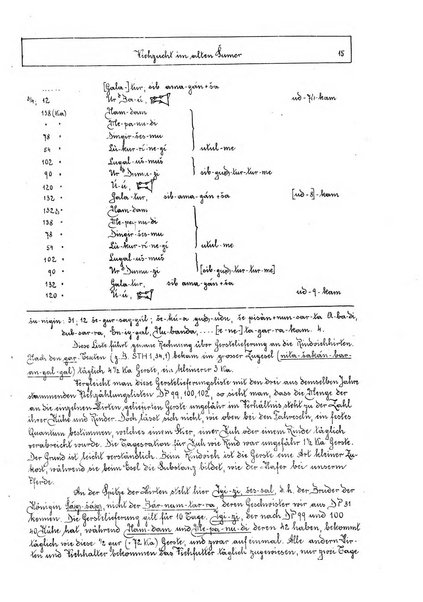 Viehzucht im alten Sumer 15
[Gala-]tur, sib ama-gán+ša
12 Ur ud-7-kam
132(Ka) Ḫam-dam
" Me-pa-nu-di
78 " Dingir-šeš-mu
54 " Lú-kur-ri-ne-gi utul-me
102 " Lugal-uš-muš
90 " Ur Dumu-zi sib-gud-tur-tur-me
120 " U-ú,
132 " Gala-tur, sib ama-gán+ša [ud-8]-kam
132 " Ḫam-dam
138 " Me-pa-nu-di
78 " Dingir-šeš-mu
54 " Lú-kur-ri-ne-gi utul-me
102 " Lugal-uš-muš
90 " Ur Dumu-zi [sib-gud-tur-tur-me]
132 " Gala-tur, sib ama-gán+ša
120 " U-ú, ud-9-kam
šu-nigin: 31,12 še-gur-sag-gál; še-kú-a gud-udu, še pisán-nun-sar-ra A-ba-di,
dub-sar-ra, En-ig-gal, Nu-banda, ....[e-ne-]ta-gar-ra-kam. 4.
Diese Liste führt genaue Rechnung über Gerstelieferung an die Rindviehhirten.
Nach den gar-Texten (z.B. STH 1,34,1) bekam ein grosser Zugesel
täglich 4½ Ka Gerste, ein kleinerer 3 Ka.
Vergleicht man diese Gerstelieferungsliste mit den drei aus demselben Jahre
stammenden Viehzählungslisten DP 99, 100, 102, so sieht man, dass die Menge der
an die einzelnen Hirten gelieferten Gerste ungefähr im Verhältnis steht zu der Zahl
ihrer Kühe und Rinder. Doch lässt sich nicht, wie oben bei den Jahreseseln, ein festes
Quantum bestimmen, welches einem Stier, einer Kuh oder einem Rinde täglich
verabreicht wurde. Die Tagesration für Kuh wie Rind war ungefähr 1½ Ka Gerste.
Der Grund ist leicht verständlich. Beim Rindvieh ist die Gerste eine Art kleiner Zu-
kost, während sie beim Esel die Substanz bildet, wie der Hafer bei unserm
Pferde.
An der Spitze der Hirten steht hier Igi-zi, šeš-sal, d.h. der Bruder der
Königin, nicht der Bár-nam-tar-ra, deren Geschwister wir aus DP 31
kennen. Die Gerstelieferung gilt für 10 Tage. Igi-zi, der nach DP 99 und 100
40 Kühe hat, während Ḫam-dam und Me-pa-nu-di deren 42 haben, bekommt
täglich wie diese ½ gur (=72 Ka) Gerste, und zwar auf einmal. Alle andern Hir-
ten und Viehhalter bekommen das Viehfutter täglich zugewiesen, nur zwei Tage